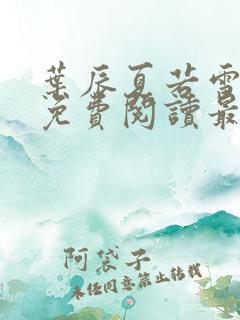 葉辰夏若雪
免費閱讀最
阿袋子
未经同意禁止转载